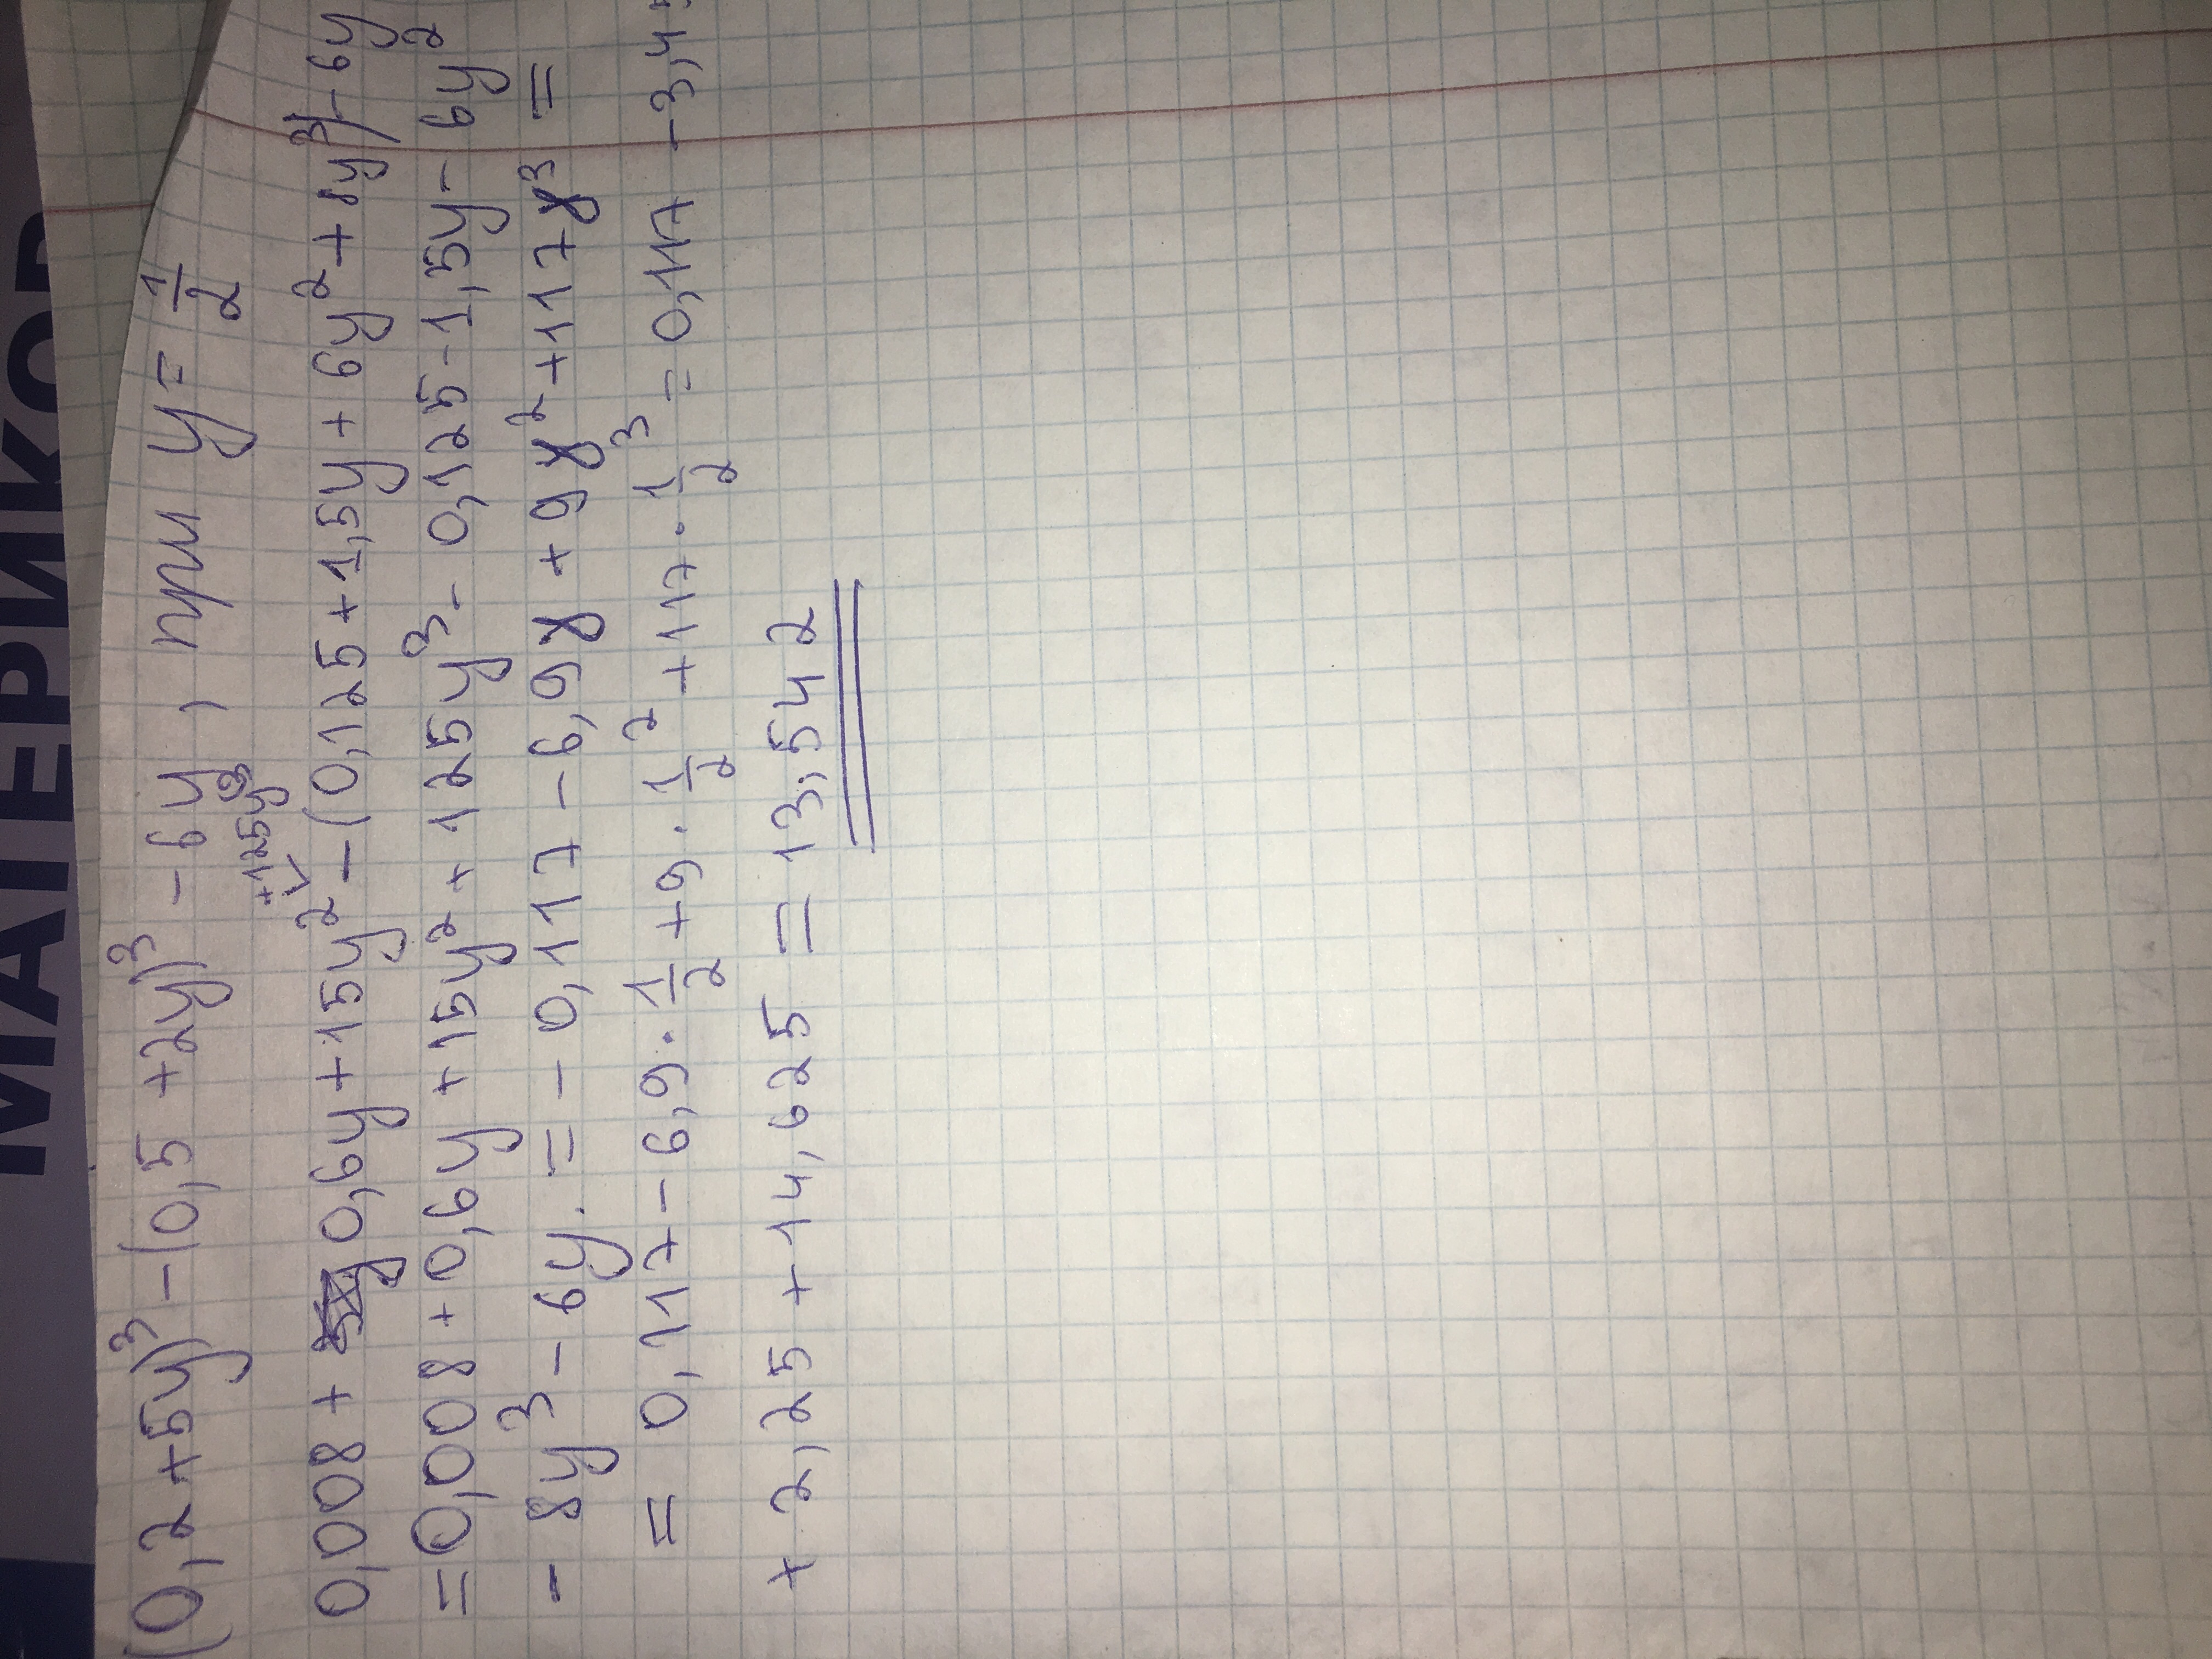 МАТЕРИКОВ
(0,2+5y)³-(0,5+2y)³-6y, при y=1/2
+125y³
0,008+0,6y+15y²-(0,125+1,5y+6y²+8y³)-6y
=0,008+0,6y+15y²+125y³-0,125-1,5y-6y²
-8y³-6y.=-0,117-6,9y+9y²+117y³=
=0,117-6,9·1/2+9·1/2²+117·1/2³=0,117-3,4
+2,25+14,625=13,542